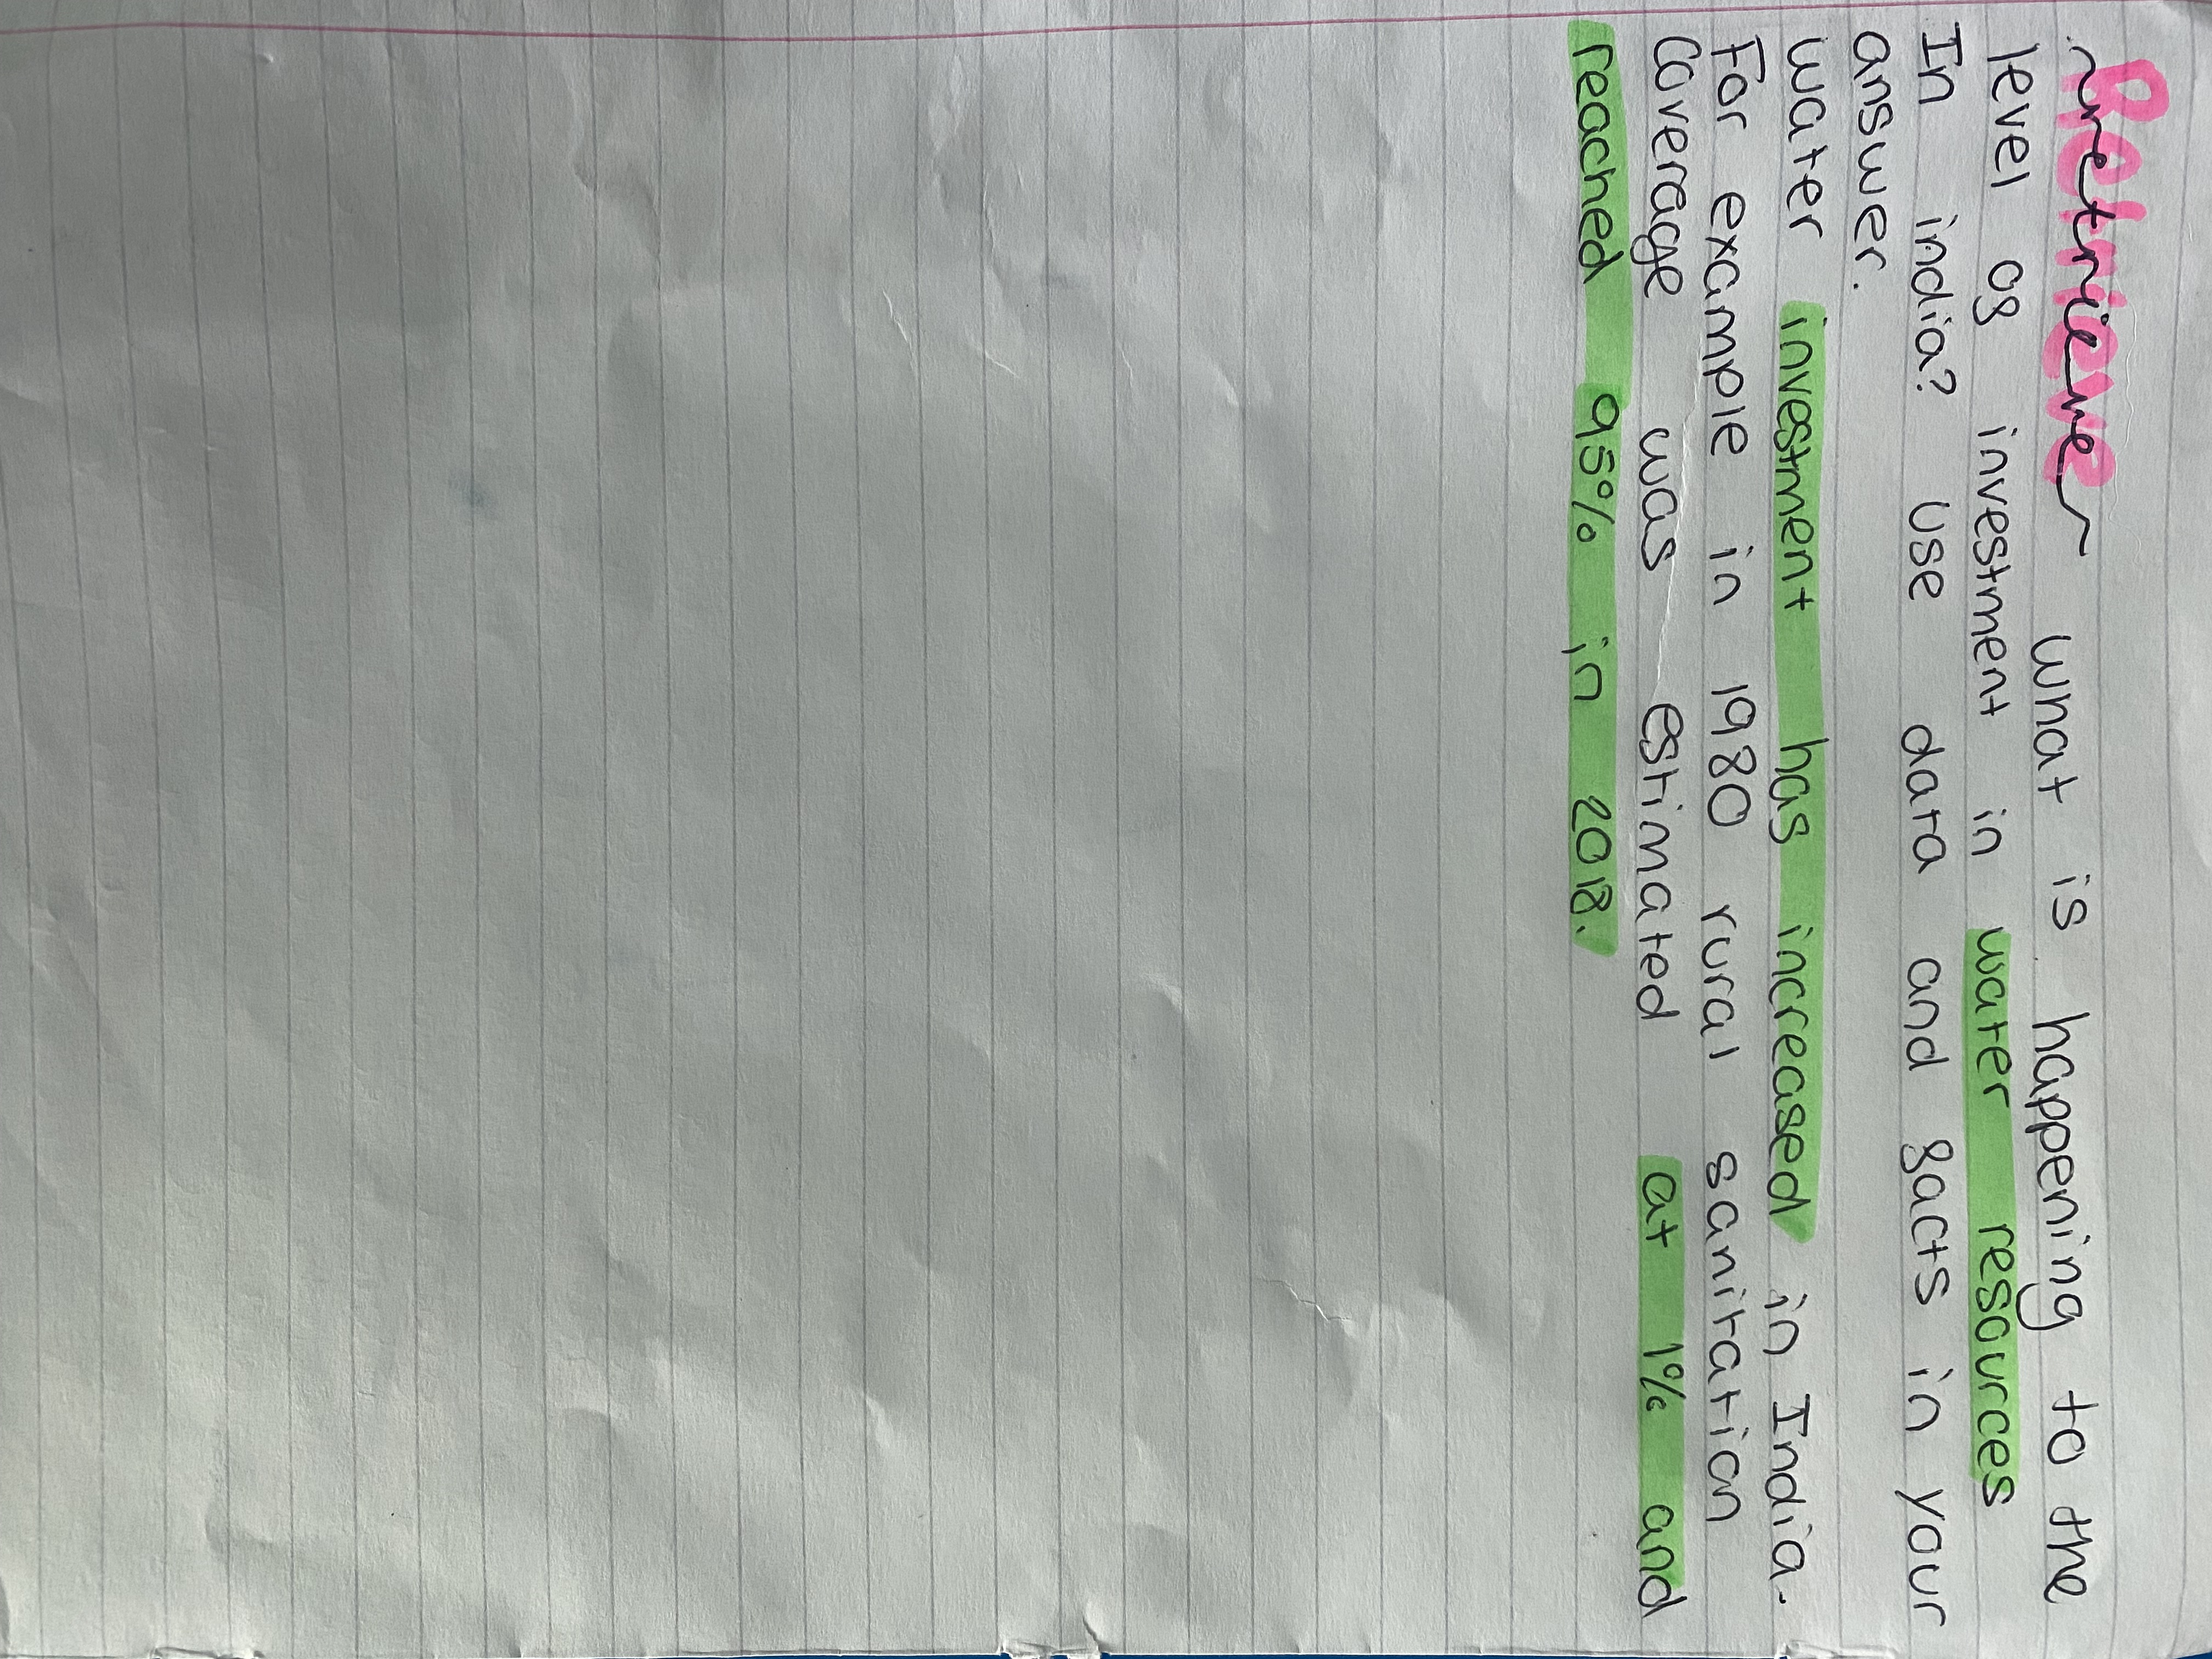 Retrieve what is happening to the
level of investment in water resources
In india? Use data and facts in your
answer.
Water investment has increased in India.
For example in 1980 rural sanitation
Coverage was estimated at 1% and
reached 95% in 2018.